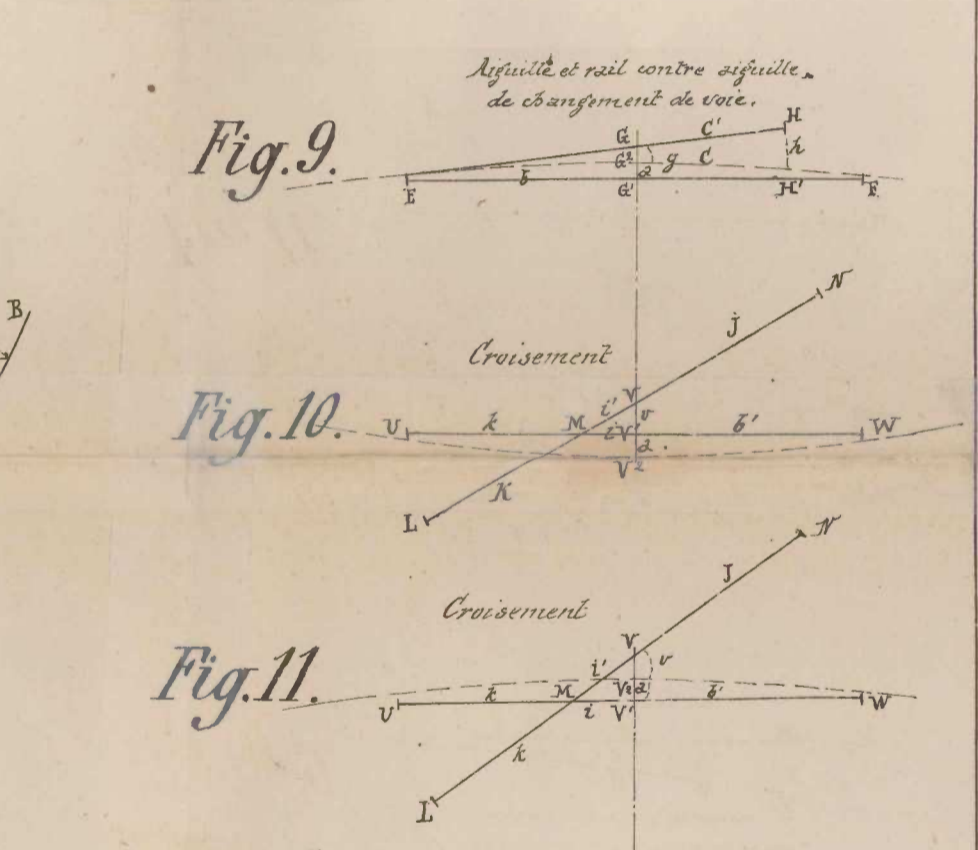 Aiguille et rail contre aiguille.
de changement de voie.
Fig. 9.
G C' H
G² g C h
a
E b G' H' F
B
N
J
Croisement
Fig. 10.
V
i' v
U k M i V' b' W
a
V²
K
L
N
J
Croisement
Fig. 11.
V
i' v
k M V² a b'
U i V' W
k
L